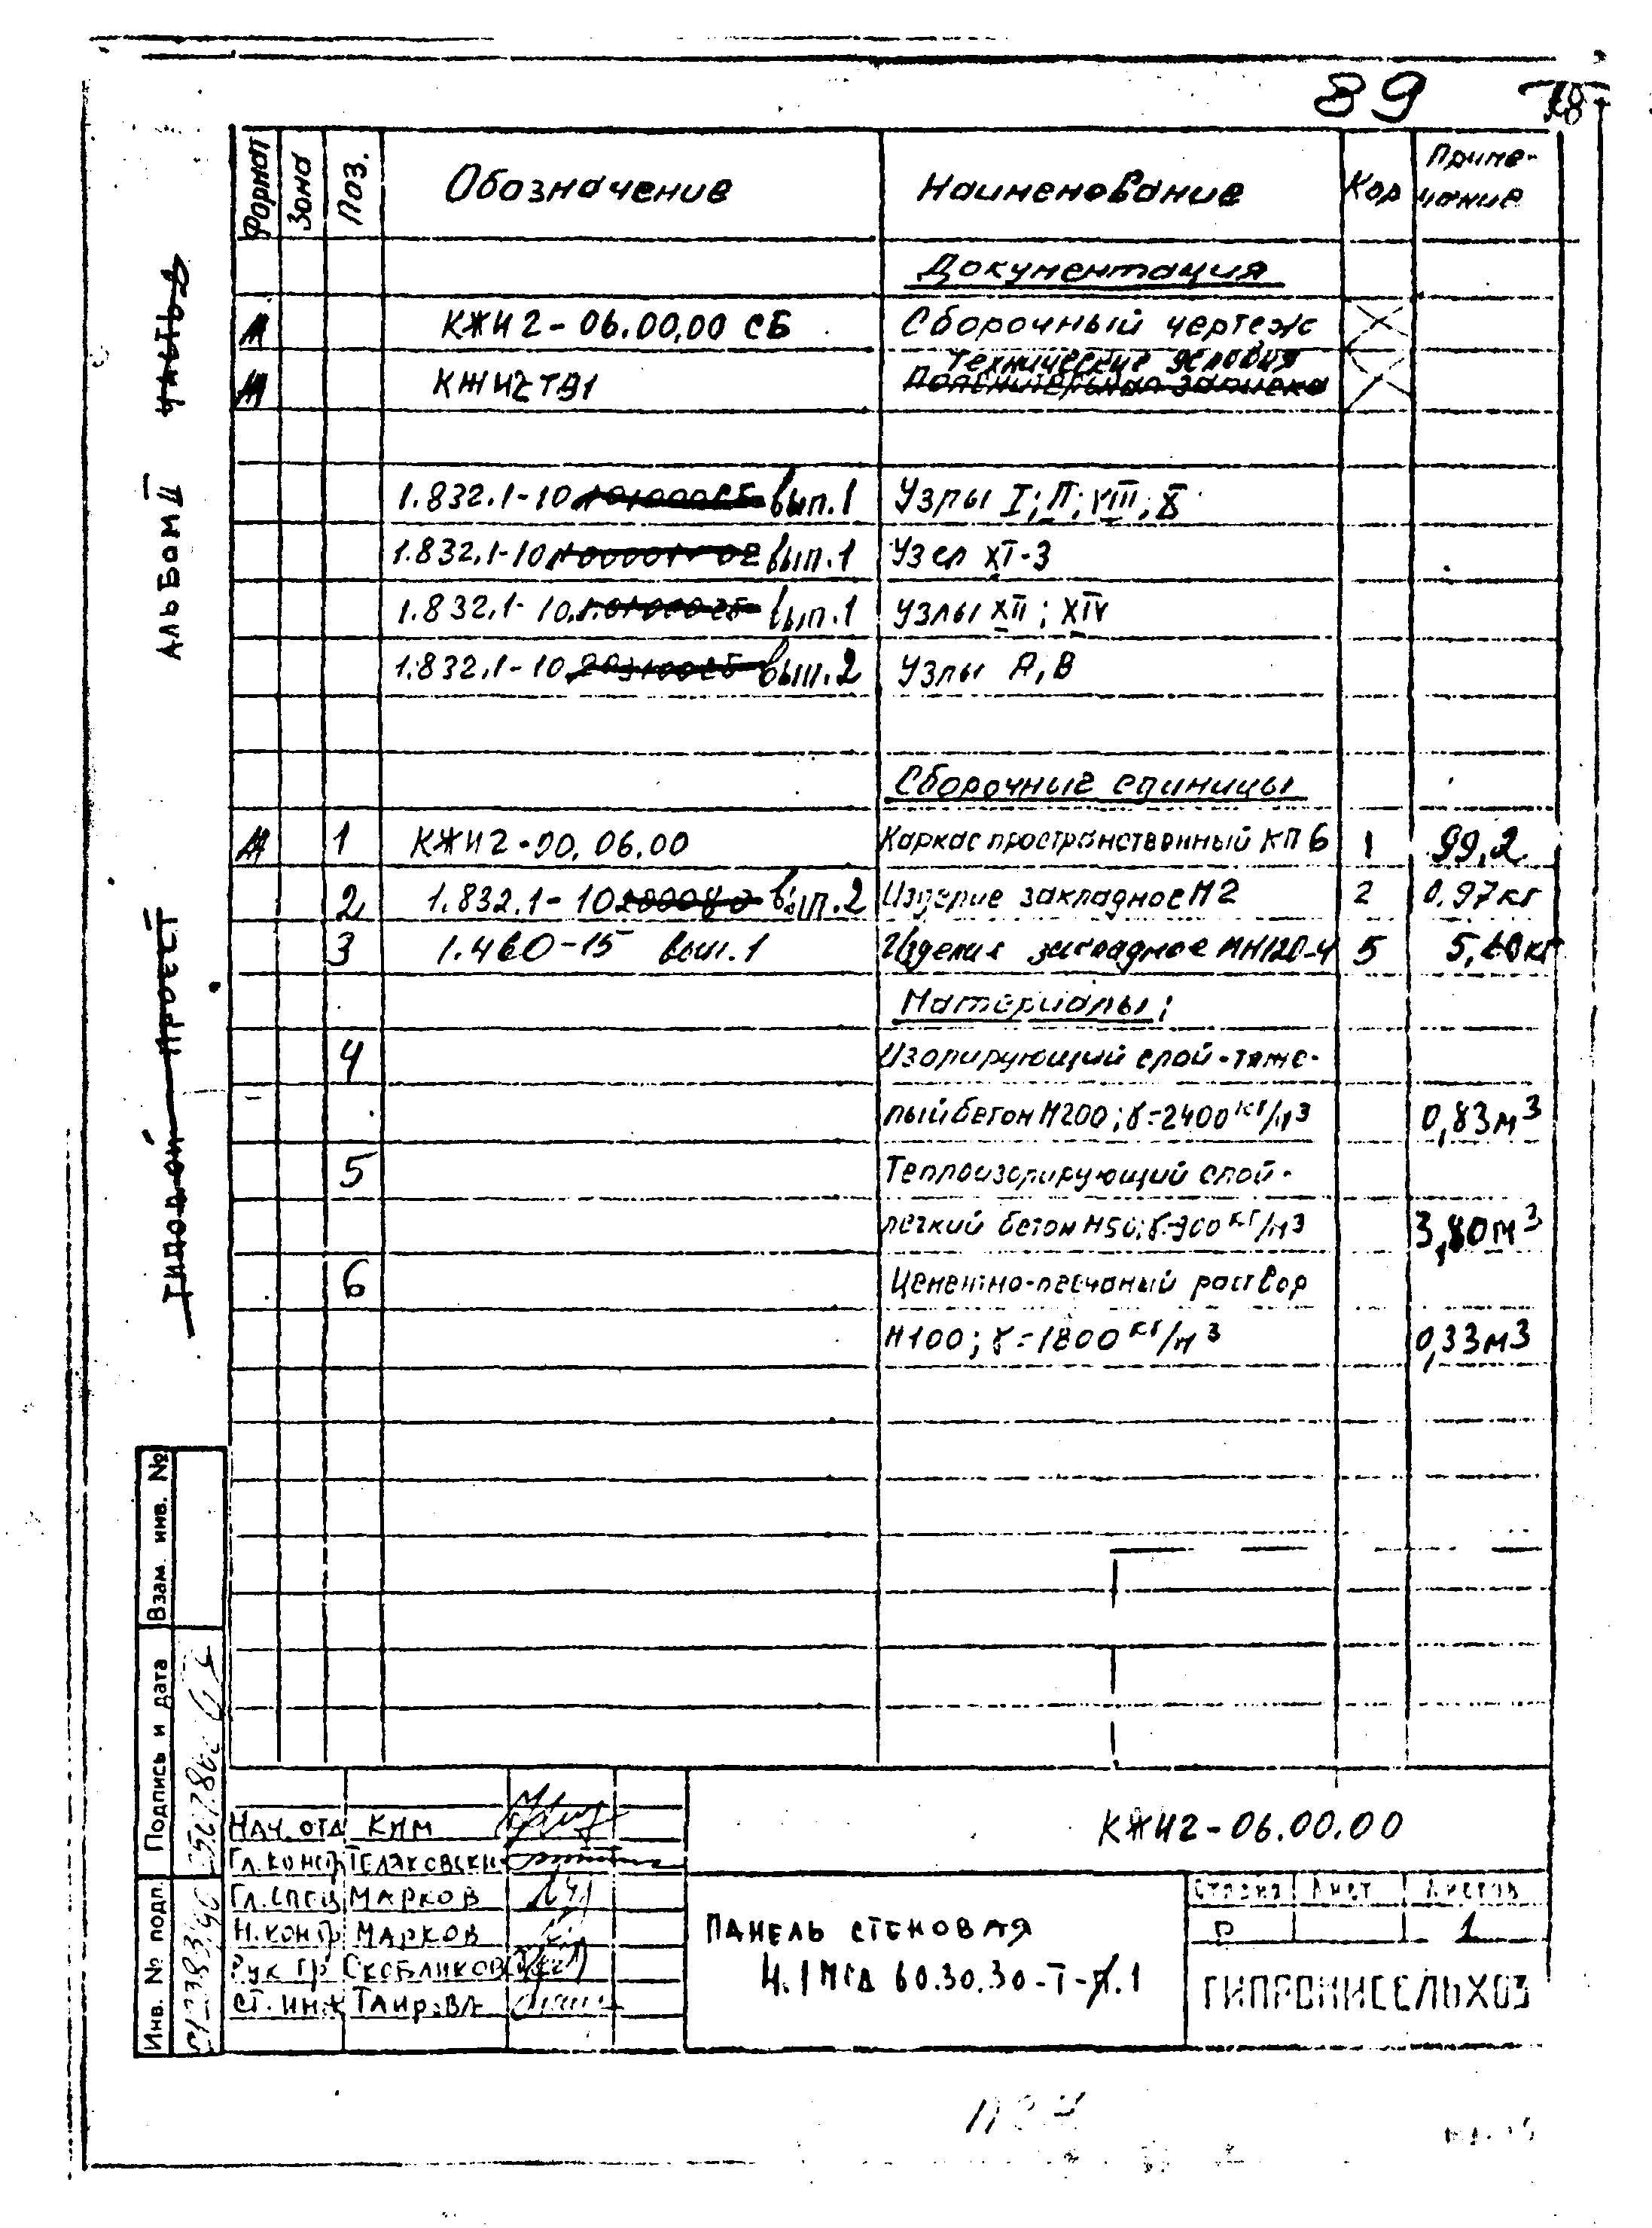 89
Формат Зона Поз. Обозначение Наименование Кол Приме-
чание
Документация
КЖИ2-06.00.00 СБ Сборочный чертеж
Технические условия
КЖИ2ТУ1 Пояснительная записка
1.832.1-10 вып.1 Узлы I; II; VIII; X
1.832.1-10 вып.1 Узел XI-3
1.832.1-10 вып.1 Узлы XII; XIV
1.832.1-10 вып.2 Узлы А, В
Сборочные единицы
1 КЖИ2-00.06.00 Каркас пространственный КП6 1 99,2
2 1.832.1-10 вып.2 Изделие закладное М2 2 0,97кг
3 1.460-15 вып.1 Изделие закладное МН120-4 5
Материалы:
4 Изолирующий слой-тяже-
лый бетон М200; γ=2400 кг/м3 0,83м3
5 Теплоизолирующий слой-
легкий бетон М50; γ=900 кг/м3 3,80м3
6 Цементно-песчаный раствор
М100; γ=1800 кг/м3 0,33м3
АЛЬБОМ II ЧАСТЬ
ТИПОВОЙ ПРОЕКТ
Взам. инв. №
Подпись и дата
Инв. № подл.
Нач. отд КИМ
Гл. констр
Гл. спец МАРКОВ
Н. контр МАРКОВ
Рук гр Скобликов
Ст. инж
КЖИ2-06.00.00
ПАНЕЛЬ СТЕНОВАЯ
60.30.30-Т-
Стадия Лист Листов
Р 1
ГИПРОНИСЕЛЬХОЗ